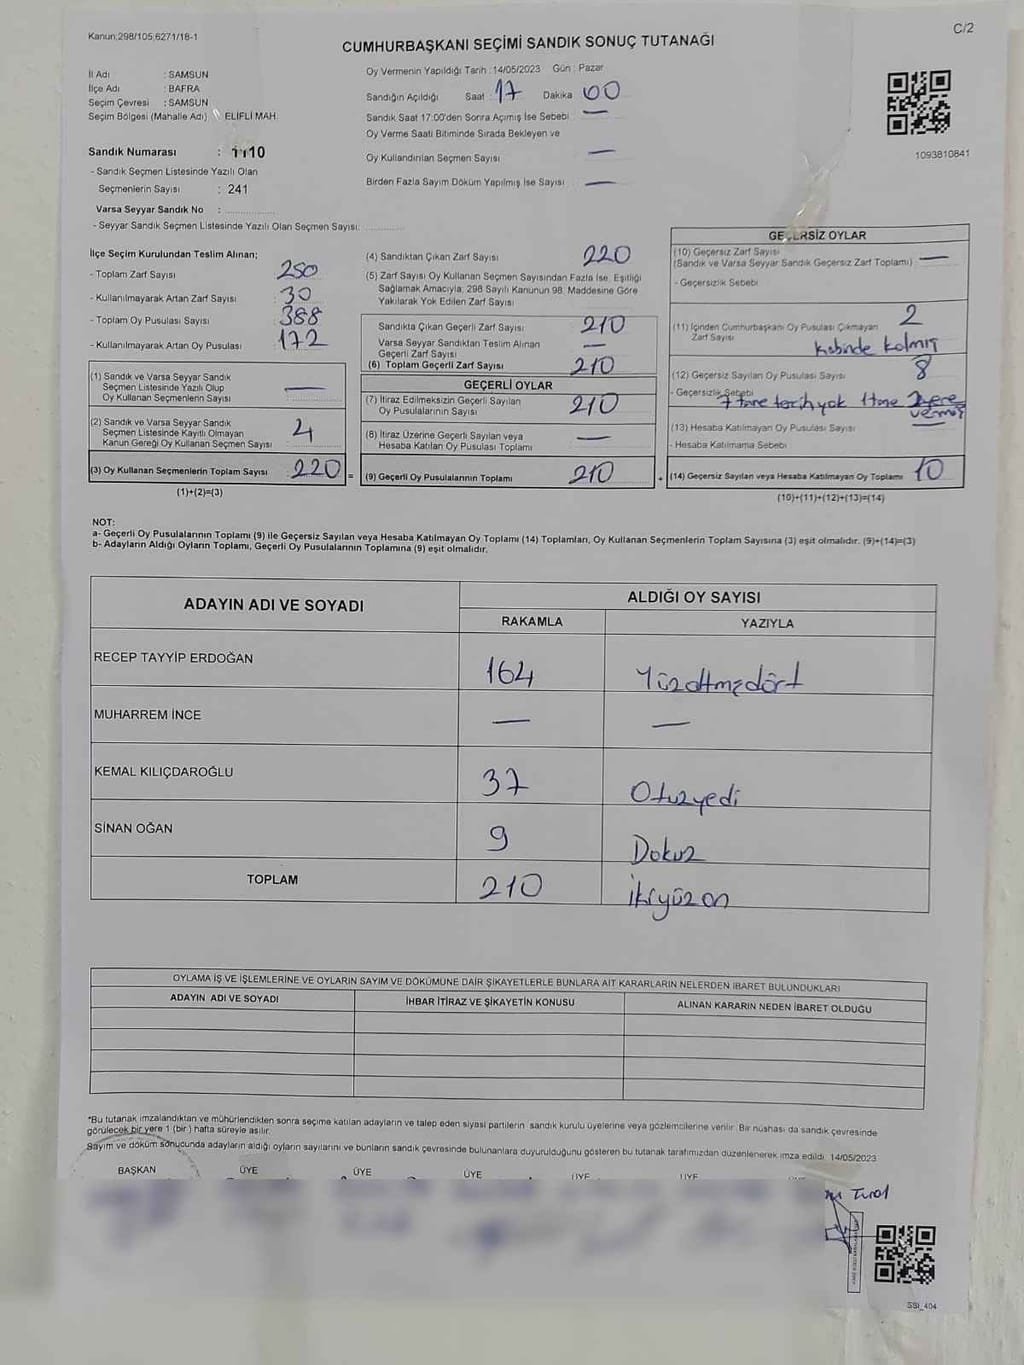 Kanun:298/105,6271/18-1
C/2
CUMHURBAŞKANI SEÇİMİ SANDIK SONUÇ TUTANAĞI
İl Adı : SAMSUN
İlçe Adı : BAFRA
Seçim Çevresi : SAMSUN
Seçim Bölgesi (Mahalle Adı) ELİFLİ MAH.
Sandık Numarası : 1110
- Sandık Seçmen Listesinde Yazılı Olan
Seçmenlerin Sayısı : 241
Varsa Seyyar Sandık No :
- Seyyar Sandık Seçmen Listesinde Yazılı Olan Seçmen Sayısı:
Oy Vermenin Yapıldığı Tarih :14/05/2023 Gün : Pazar
Sandığın Açıldığı Saat 17 Dakika 00
Sandık Saat 17:00'den Sonra Açımış İse Sebebi —
Oy Verme Saati Bitiminde Sırada Bekleyen ve
Oy Kullandırılan Seçmen Sayısı —
Birden Fazla Sayım Döküm Yapılmış İse Sayısı —
1093810841
İlçe Seçim Kurulundan Teslim Alınan;
- Toplam Zarf Sayısı 250
- Kullanılmayarak Artan Zarf Sayısı 30
- Toplam Oy Pusulası Sayısı 388
- Kullanılmayarak Artan Oy Pusulası 172
(1) Sandık ve Varsa Seyyar Sandık
Seçmen Listesinde Yazılı Olup
Oy Kullanan Seçmenlerin Sayısı —
(2) Sandık ve Varsa Seyyar Sandık
Seçmen Listesinde Kayıtlı Olmayan
Kanun Gereği Oy Kullanan Seçmen Sayısı 4
(3) Oy Kullanan Seçmenlerin Toplam Sayısı 220 =
(1)+(2)=(3)
(4) Sandıktan Çıkan Zarf Sayısı 220
(5) Zarf Sayısı Oy Kullanan Seçmen Sayısından Fazla İse, Eşitliği
Sağlamak Amacıyla; 298 Sayılı Kanunun 98. Maddesine Göre
Yakılarak Yok Edilen Zarf Sayısı
Sandıkta Çıkan Geçerli Zarf Sayısı 210
Varsa Seyyar Sandıktan Teslim Alınan
Geçerli Zarf Sayısı —
(6) Toplam Geçerli Zarf Sayısı 210
GEÇERLİ OYLAR
(7) İtiraz Edilmeksizin Geçerli Sayılan
Oy Pusulalarının Sayısı 210
(8) İtiraz Üzerine Geçerli Sayılan veya
Hesaba Katılan Oy Pusulası Toplamı —
(9) Geçerli Oy Pusulalarının Toplamı 210 +
GEÇERSİZ OYLAR
(10) Geçersiz Zarf Sayısı
(Sandık ve Varsa Seyyar Sandık Geçersiz Zarf Toplamı) —
- Geçersizlik Sebebi
(11) İçinden Cumhurbaşkanı Oy Pusulası Çıkmayan
Zarf Sayısı 2
Kabinde kalmış
(12) Geçersiz Sayılan Oy Pusulası Sayısı 8
- Geçersizlik Sebebi
7 tane tercih yok 1 tane 2 yere
vermiş
(13) Hesaba Katılmayan Oy Pusulası Sayısı —
- Hesaba Katılmama Sebebi
(14) Geçersiz Sayılan veya Hesaba Katılmayan Oy Toplamı 10
(10)+(11)+(12)+(13)=(14)
NOT:
a- Geçerli Oy Pusulalarının Toplamı (9) ile Geçersiz Sayılan veya Hesaba Katılmayan Oy Toplamı (14) Toplamları, Oy Kullanan Seçmenlerin Toplam Sayısına (3) eşit olmalıdır. (9)+(14)=(3)
b- Adayların Aldığı Oyların Toplamı, Geçerli Oy Pusulalarının Toplamına (9) eşit olmalıdır.
ADAYIN ADI VE SOYADI
ALDIĞI OY SAYISI
RAKAMLA YAZIYLA
RECEP TAYYİP ERDOĞAN 164 Yüzaltmışdört
MUHARREM İNCE — —
KEMAL KILIÇDAROĞLU 37 Otuzyedi
SİNAN OĞAN 9 Dokuz
TOPLAM 210 İkiyüzon
OYLAMA İŞ VE İŞLEMLERİNE VE OYLARIN SAYIM VE DÖKÜMÜNE DAİR ŞİKAYETLERLE BUNLARA AİT KARARLARIN NELERDEN İBARET BULUNDUKLARI
ADAYIN ADI VE SOYADI İHBAR İTİRAZ VE ŞİKAYETİN KONUSU ALINAN KARARIN NEDEN İBARET OLDUĞU
*Bu tutanak imzalandıktan ve mühürlendikten sonra seçime katılan adayların ve talep eden siyasi partilerin sandık kurulu üyelerine veya gözlemcilerine verilir. Bir nüshası da sandık çevresinde
görülecek bir yere 1 (bir) hafta süreyle asılır.
Sayım ve döküm sonucunda adayların aldığı oyların sayılarını ve bunların sandık çevresinde bulunanlara duyurulduğunu gösteren bu tutanak tarafımızdan düzenlenerek imza edildi. 14/05/2023
BAŞKAN ÜYE ÜYE ÜYE ÜYE ÜYE
SSİ_404